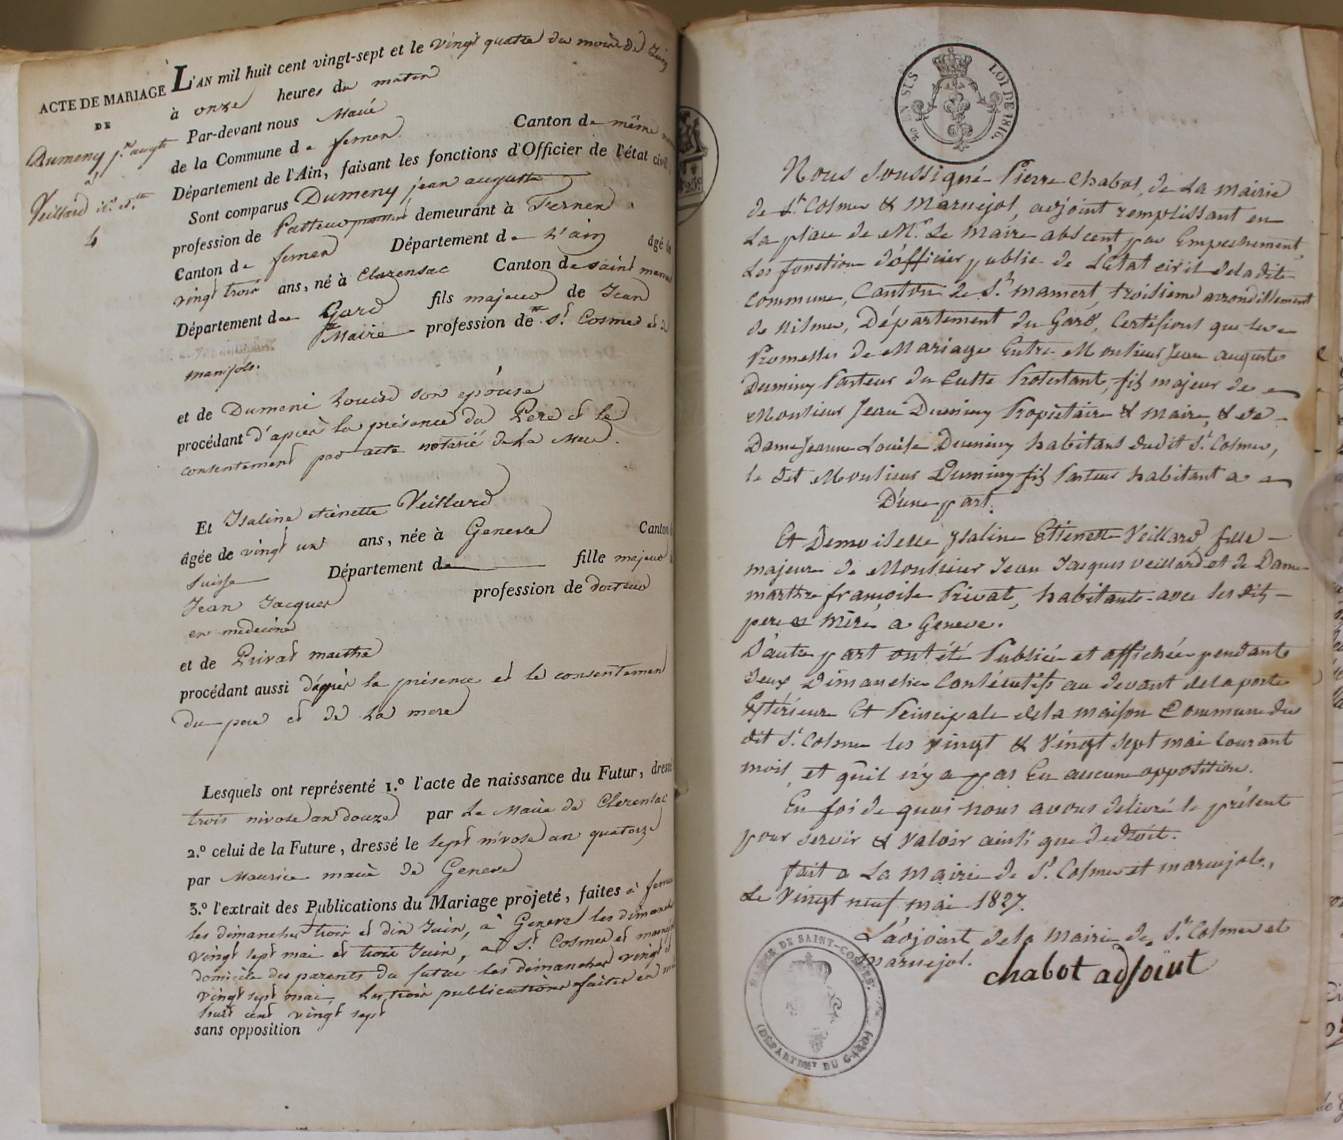 ACTE DE MARIAGE
DE
Dumeny j.n aug.te
à
Veillard
4
L'AN mil huit cent vingt-sept et le vingt quatre du mois de Juin
à onze heures du matin
Par-devant nous Maire
de la Commune de fernex Canton de même
Département de l'Ain, faisant les fonctions d'Officier de l'état civil,
Sont comparus Dumeny jean auguste
profession de Pasteur demeurant à Fernex
Canton de fernex Département de L'ain âgé de
vingt trois ans, né à Clarensac Canton de saint mamert
Département de Gard fils majeur de Jean
Maire profession de St Cosme et de
maruejols.
et de Dumeni Louise son épouse
procédant d'après la présence du Père et le
consentement par acte notarié de La Mere.
Et Isaline etienette Veillard
âgée de vingt un ans, née à Geneve Canton
Suisse Département de fille majeure
Jean Jacques profession de docteur
en medecine
et de Privat marthe
procédant aussi d'après la présence et le consentement
du pere et de La mere
Lesquels ont représenté 1.º l'acte de naissance du Futur, dressé
trois nivose an douze par Le Maire de Clarensac
2.º celui de la Future, dressé le sept nivose an quatorze
par Maurice maire de Geneve
3.º l'extrait des Publications du Mariage projeté, faites à fernex
les dimanches trois et dix Juin, à Geneve les dimanches
vingt sept mai et trois Juin, à St Cosme et maruejols
domicile des parents du futur les dimanches vingt et
vingt sept mai, Les trois publications faites en mil
huit cent vingt sept
sans opposition
LOI DE 1816.
Nous Soussigné Pierre Chabot, de La mairie
de St Cosme & Maruejol, adjoint remplissant en
La place de Mr. Le Maire abscent par Empechement
Les fonction d'officier public de Letat civil de la dit
Commune, Canton de St mamert, troisieme arrondissement
de Nismes, Département du Gard, Certifions que les
Promesses de Mariage Entre Monsieur Jean auguste
Duminy Pasteur du Culte Protestant, fils majeur de
Monsieur Jean Duminy Propietaire & Maire, & de
Dame Jeanne Louise Duminy habitans dudit St Cosme,
le dit Monsieur Duminy fils Pasteur habitant a
D'une part.
Et Demoiselle Isaline Etienette Veillard fille
majeure de Monsieur Jean Jacques Veillard et de Dame
marthe françoise Privat, habitante avec ses dits
pere & Mère a Geneve.
D'autre part ont été Publiée et affichée pendant
deux Dimanche Consécutifs au devant de la porte
Extérieure Et Principale de la maison Commune du
dit St Cosme les vingt & Vingt sept mai Courant
mois, et qu'il n'y a pas Eu aucune opposition.
En foi de quoi nous avons délivré le présent
pour servir & Valoir ainsi que de droit.
fait a La Mairie de St Cosme et maruejols,
Le Vingt neuf mai 1827.
L'adjoint de la Mairie de St Cosme et
Maruejol.
chabot adjoint
MAIRIE DE SAINT-COSMES.
(DÉPARTEMT DU GARD)